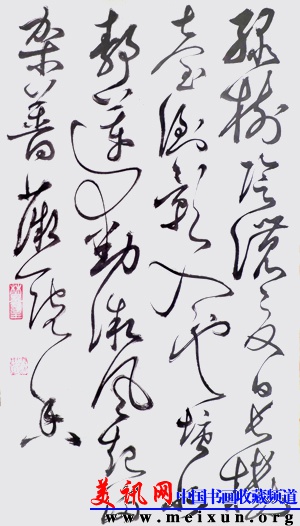 綠樹陰濃夏日長樓
臺倒影入池塘水
精簾動微風起滿
架薔薇一院香
美讯网 中国书画收藏频道
www.meixun.org